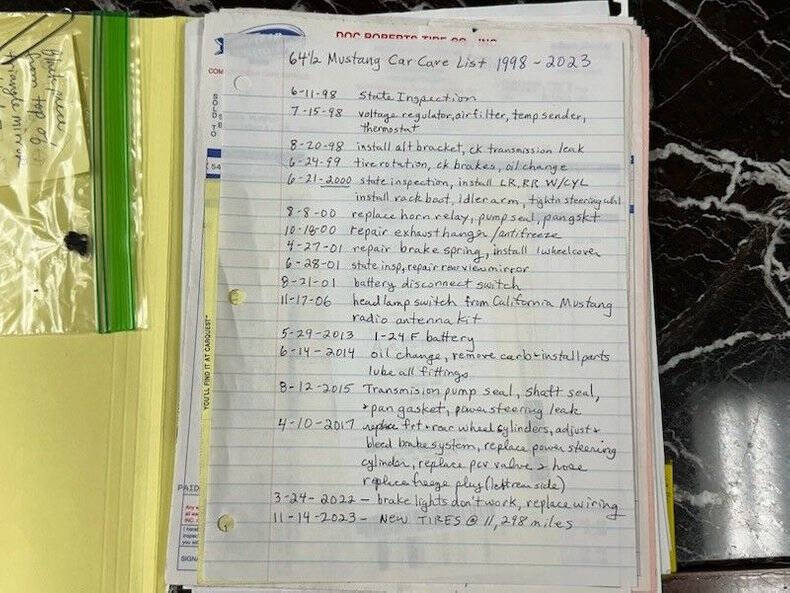 DOC ROBERTS TIRE CO., INC.
COM
SOLD TO
64½ Mustang Car Care List 1998-2023
6-11-98 State Inspection
7-15-98 voltage regulator, air filter, temp sender,
thermostat
8-20-98 install alt bracket, ck transmission leak
6-24-99 tire rotation, ck brakes, oil change
6-21-2000 state inspection, install LR, RR W/CYL
install rack boot, idler arm, tightn steering whl
8-8-00 replace horn relay, pump seal, pangskt
10-18-00 repair exhaust hanger/antifreeze
4-27-01 repair brake spring, install 1 wheelcover
6-28-01 state insp, repair rearview mirror
8-21-01 battery disconnect switch
11-17-06 head lamp switch from California Mustang
radio antenna kit
5-29-2013 1-24F battery
6-14-2014 oil change, remove carb + install parts
lube all fittings
8-12-2015 Transmision pump seal, shaft seal,
+ pan gasket, power steering leak
4-10-2017 replace frt + rear wheel cylinders, adjust +
bleed brake system, replace power steering
cylinder, replace pcv valve & hose
replace freeze plug (left rear side)
3-24-2022 - brake lights don't work, replace wiring
11-14-2023 - NEW TIRES @ 11,298 miles
54
YOU'LL FIND IT AT CARQUEST
PAID
Any
all
INC.
I
SIGNA
from top of
triangle mirror